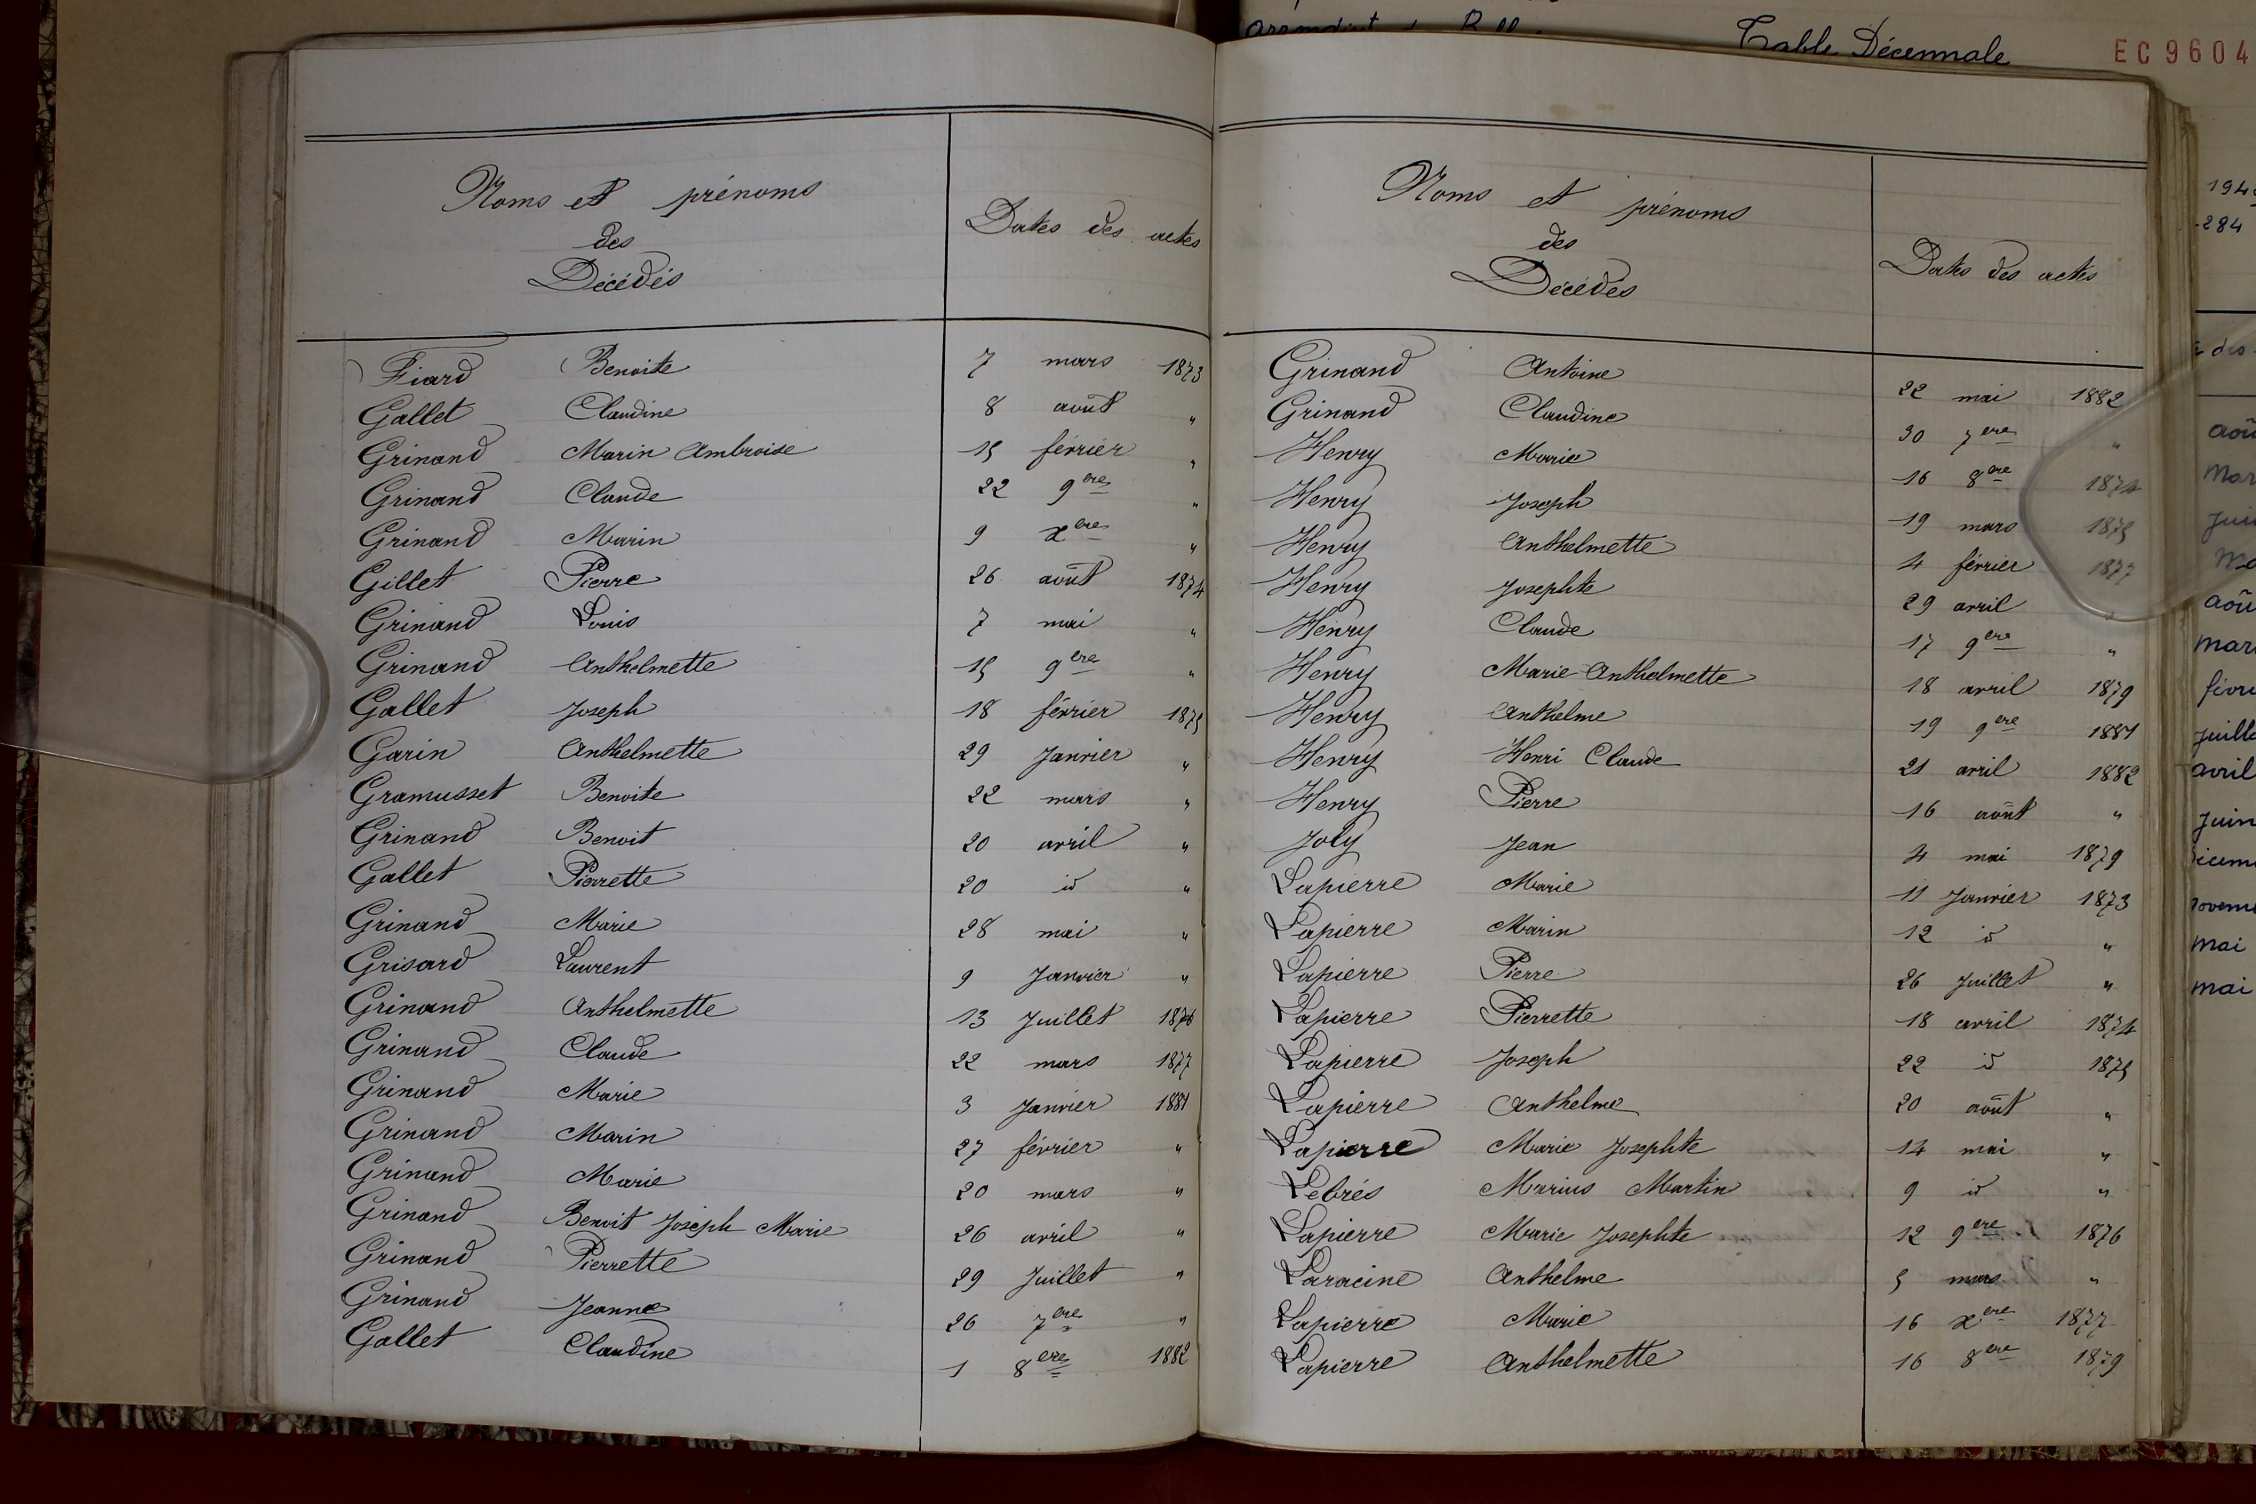 Table Décennale
EC 9604
Noms et prénoms
des
Décédés
Dates des actes
Fiard Benoite 7 mars 1873
Gallet Claudine 8 août "
Grinand Marin Ambroise 15 février "
Grinand Claude 22 9ere "
Grinand Marin 9 xere "
Gillet Pierre 26 août 1874
Grinand Louis 7 mai "
Grinand Anthelmette 15 9ere "
Gallet Joseph 18 février 1875
Garin Anthelmette 29 Janvier "
Gramusset Benoite 22 mars "
Grinand Benoit 20 avril "
Gallet Pierrette 20 id "
Grinand Marie 28 mai "
Grisard Laurent 9 Janvier "
Grinand Anthelmette 13 Juillet 1876
Grinand Claude 22 mars 1877
Grinand Marie 3 Janvier 1881
Grinand Marin 27 février "
Grinand Marie 20 mars "
Grinand Benoit Joseph Marie 26 avril "
Grinand Pierrette 29 Juillet "
Grinand Jeanne 26 7ere "
Gallet Claudine 1 8ere 1882
Noms et prénoms
des
Décédés
Dates des actes
Grinand Antoine 22 mai 1882
Grinand Claudine 30 7ere "
Henry Marie 16 8ere 1874
Henry Joseph 19 mars 1875
Henry Anthelmette 4 février 1877
Henry Josephte 29 avril "
Henry Claude 17 9ere "
Henry Marie Anthelmette 18 avril 1879
Henry Anthelme 19 9ere 1881
Henry Henri Claude 21 avril 1882
Henry Pierre 16 août "
Joly Jean 4 mai 1879
Lapierre Marie 11 Janvier 1873
Lapierre Marin 12 id "
Lapierre Pierre 26 Juillet "
Lapierre Pierrette 18 avril 1874
Lapierre Joseph 22 id 1875
Lapierre Anthelme 20 août "
Lapierre Marie Josephte 14 mai "
Lebrés Marius Martin 9 id "
Lapierre Marie Josephte 12 9ere 1876
Laracine Anthelme 5 mars "
Lapierre Marie 16 xere 1877
Lapierre Anthelmette 16 8ere 1879
284
mai
mai